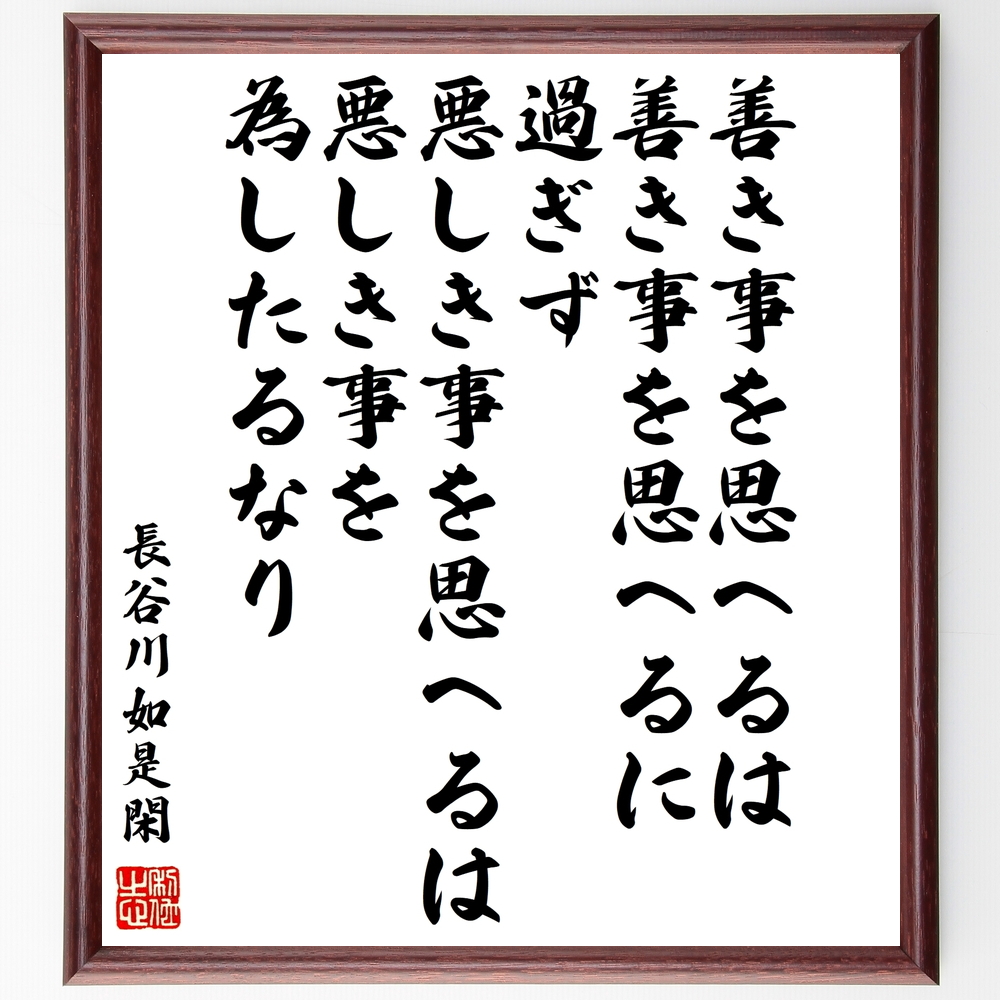 善き事を思へるは
善き事を思へるに
過ぎず
悪しき事を思へるは
悪しき事を
為したるなり
長谷川如是閑